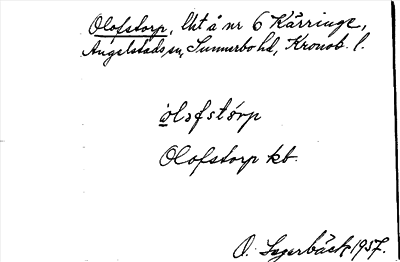 Olofstorp, lht å nr 6 Kårringe,
Angelstads sn, Sunnerbo hd, Kronob. l.
ólofstórp
Olofstorp kb.
O. Lagerbäck 1957.